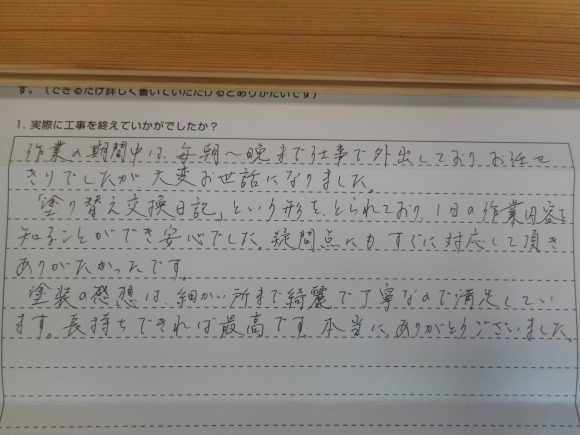 す。(できるだけ詳しく書いていただけるとありがたいです)
1. 実際に工事を終えていかがでしたか？
作業の期間中は、毎朝〜晩まで仕事で外出しており、お任せ
きりでしたが、大変お世話になりました。
「塗り替え交換日記」という形をとられており、1日の作業内容を
知ることができ安心でした。疑問点にもすぐに対応して頂き
ありがたかったです。
塗装の感想は、細かい所まで綺麗で丁寧なので満足してい
ます。長持ちできれば最高です。本当に、ありがとうございました。